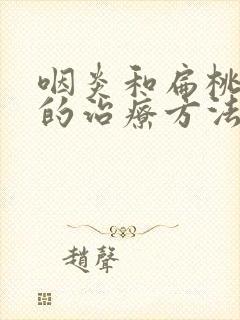 咽炎和扁桃
的治疗方法
趙聲